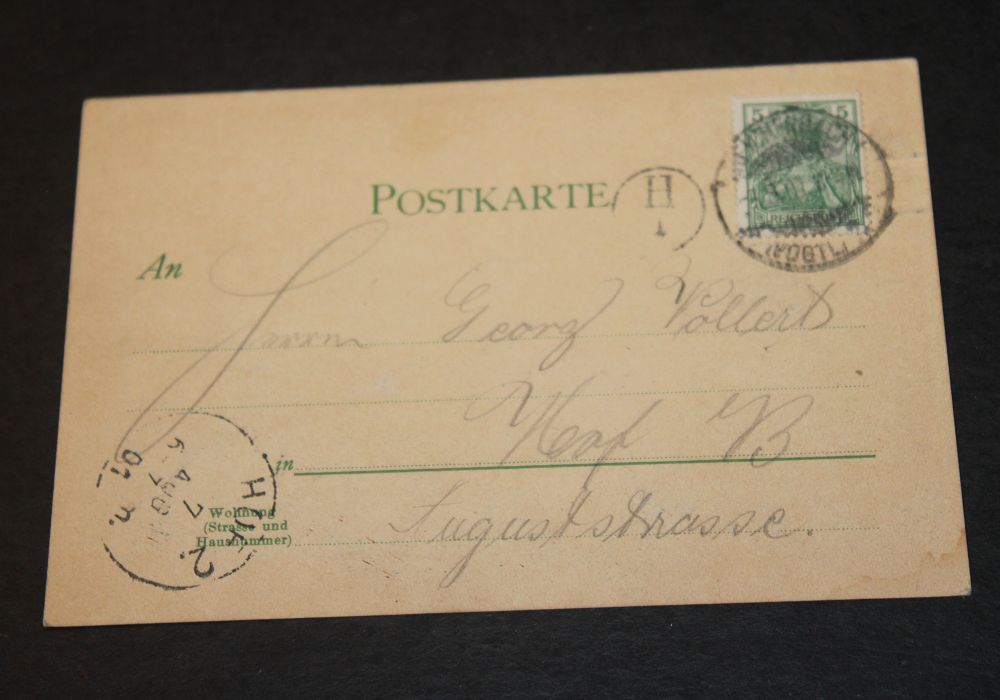 5 5
REICHSPOST
POSTKARTE
H
1
An
Herrn Georg Vollert
in Hof B
Wohnung
(Strasse und
Hausnummer)
Auguststrasse.
HOF 2.
4 7
01